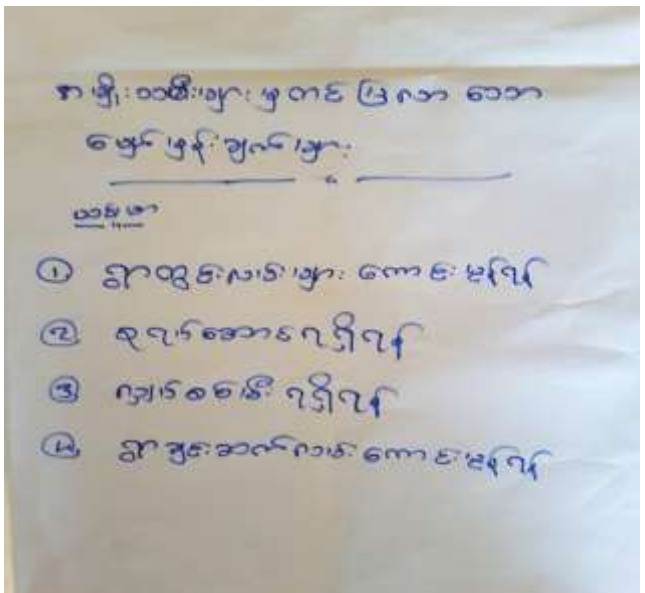 အမျိုးသမီးများမှ တင်ပြလာသော
မျှော်မှန်းချက်များ
ယခု
① ရွာတွင်းလမ်းများ ကောင်းမွန်ရန်
② ရပ်ဆောင ရရှိရန်
③ လျှပ်စစ်မီး ရရှိရန်
④ ရွာချင်းဆက်လမ်း ကောင်းမွန်ရန်